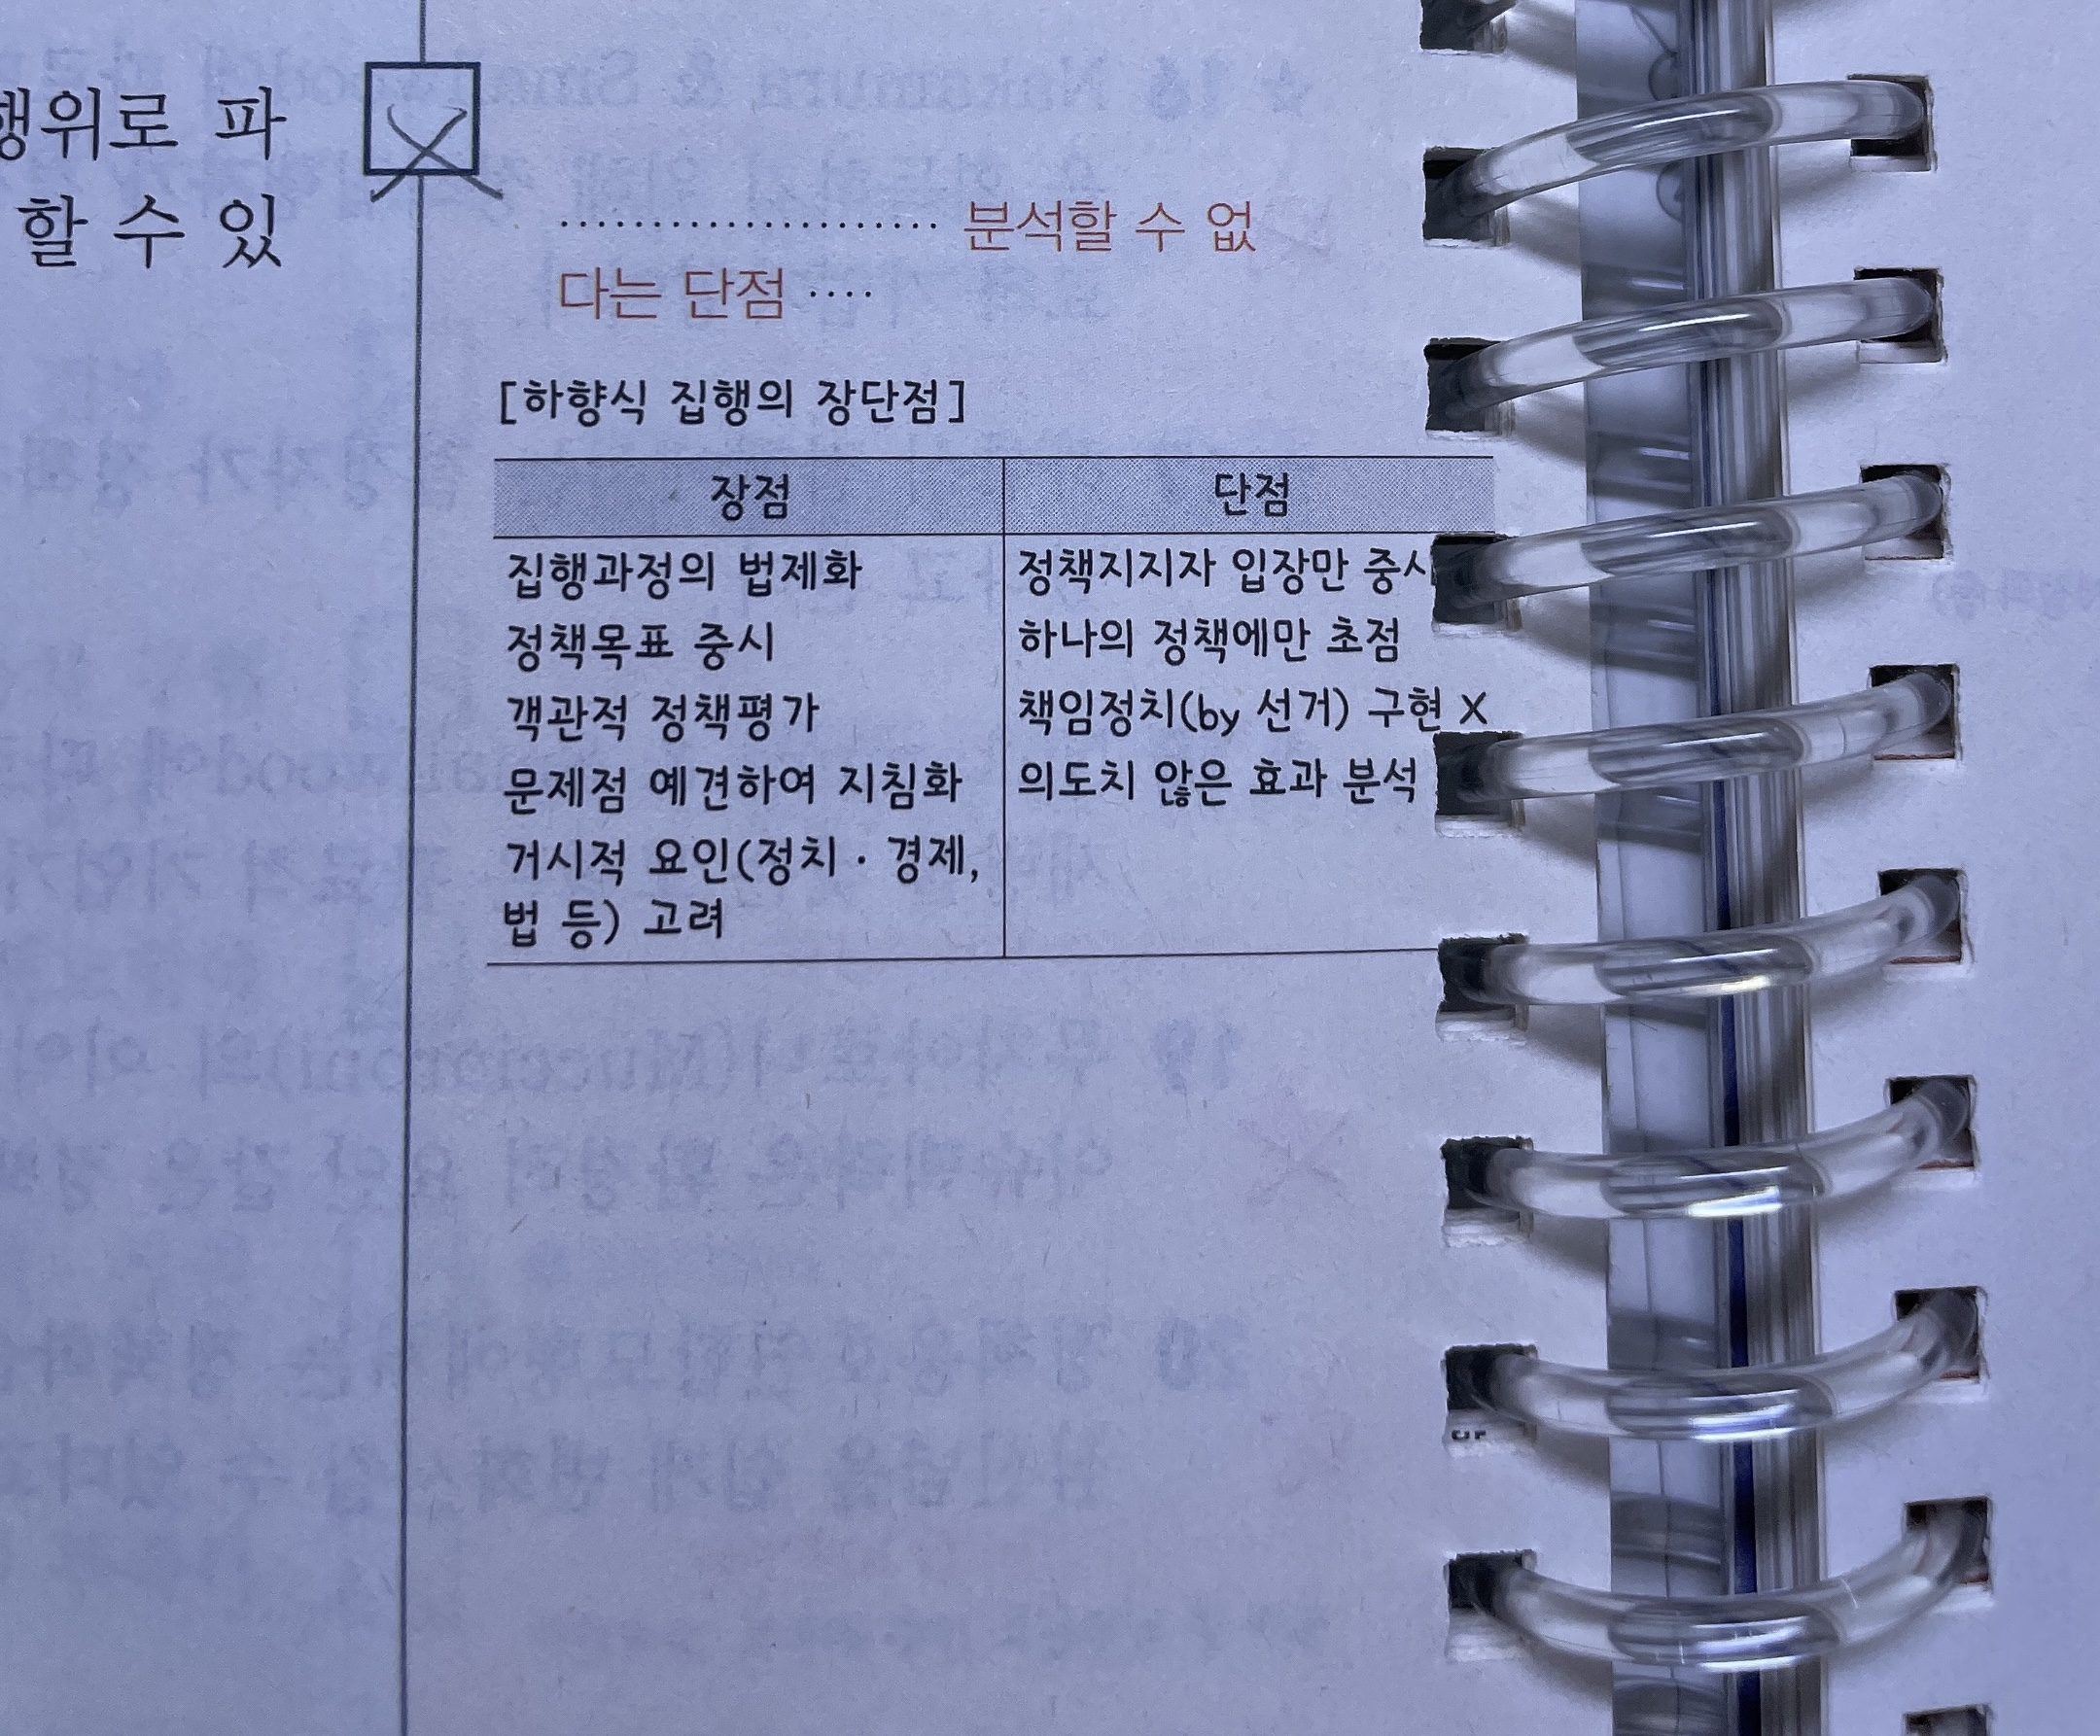 행위로 파
할 수 있
분석할 수 없
다는 단점 ····
[하향식 집행의 장단점]
장점 단점
집행과정의 법제화 정책지지자 입장만
정책목표 중시 하나의 정책에만 초점
객관적 정책평가 책임정치(by 선거) 구현 X
문제점 예견하여 지침화 의도치 않은 효과 분석
거시적 요인(정치 · 경제,
법 등) 고려